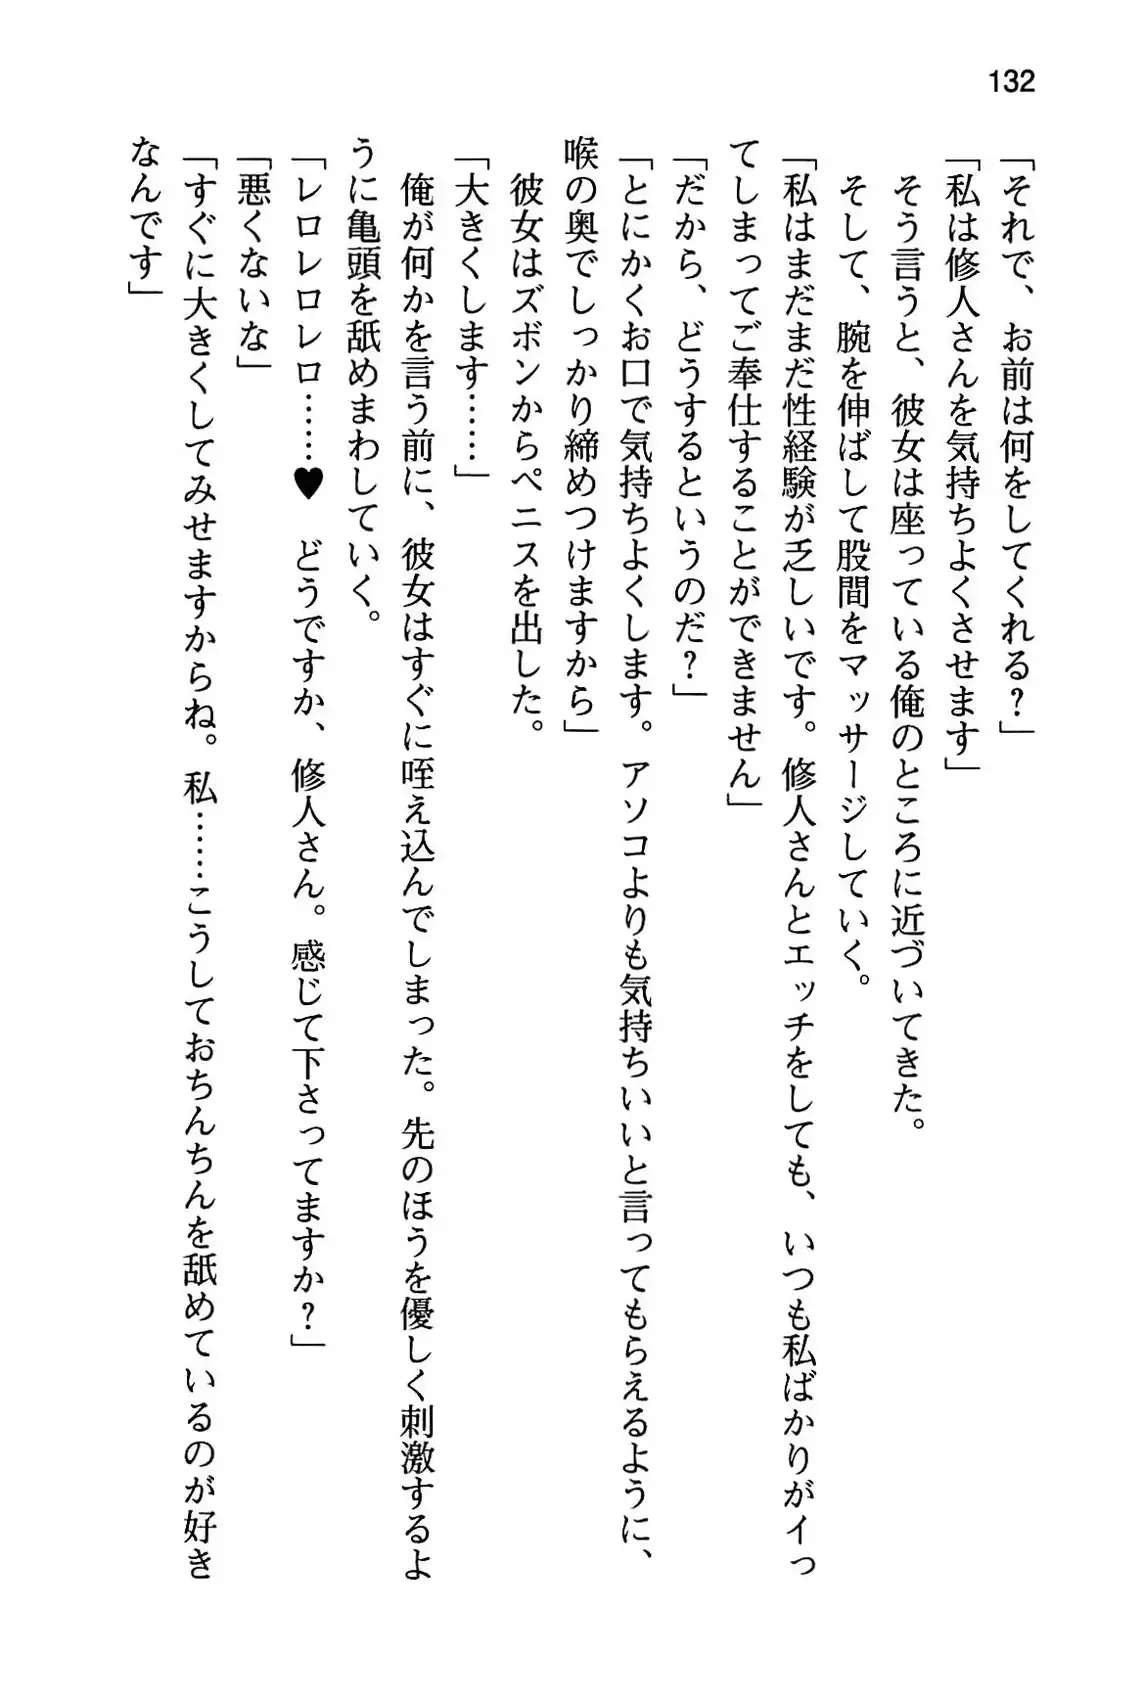 132
「それで、お前は何をしてくれる?」
「私は修人さんを気持ちよくさせます」
そう言うと、彼女は座っている俺のところに近づいてきた。
そして、腕を伸ばして股間をマッサージしていく。
「私はまだまだ性経験が乏しいです。修人さんとエッチをしても、いつも私ばかりがイっ
てしまってご奉仕することができません」
「だから、どうするというのだ?」
「とにかくお口で気持ちよくします。アソコよりも気持ちいいと言ってもらえるように、
喉の奥でしっかり締めつけますから」
彼女はズボンからペニスを出した。
「大きくします……」
俺が何かを言う前に、彼女はすぐに咥え込んでしまった。先のほうを優しく刺激するよ
うに亀頭を舐めまわしていく。
「レロレロレロ……♥ どうですか、修人さん。感じて下さってますか?」
「悪くないな」
「すぐに大きくしてみせますからね。私……こうしておちんちんを舐めているのが好き
なんです」